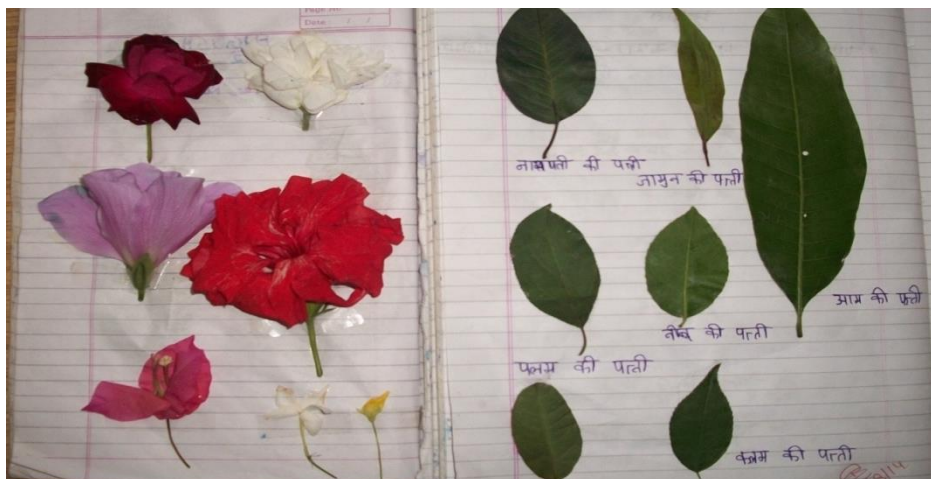 Date :
नाशपती की पत्ती
जामुन की पत्ती
आम की पत्ती
की पत्ती
पलाम की पत्ती
कलम की पत्ती